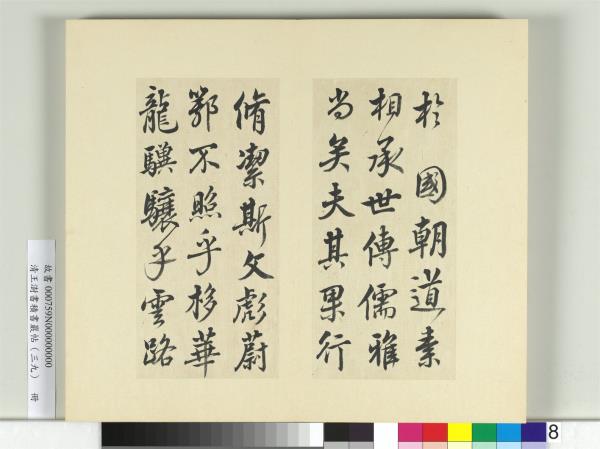 於國朝道素
相承世傳儒雅
尚矣夫其果行
脩潔斯文彪蔚
鄂不照乎移華
龍驥驤乎雲路
故書 000759N000000000
清王澍書積書巖帖(三九) 冊
8